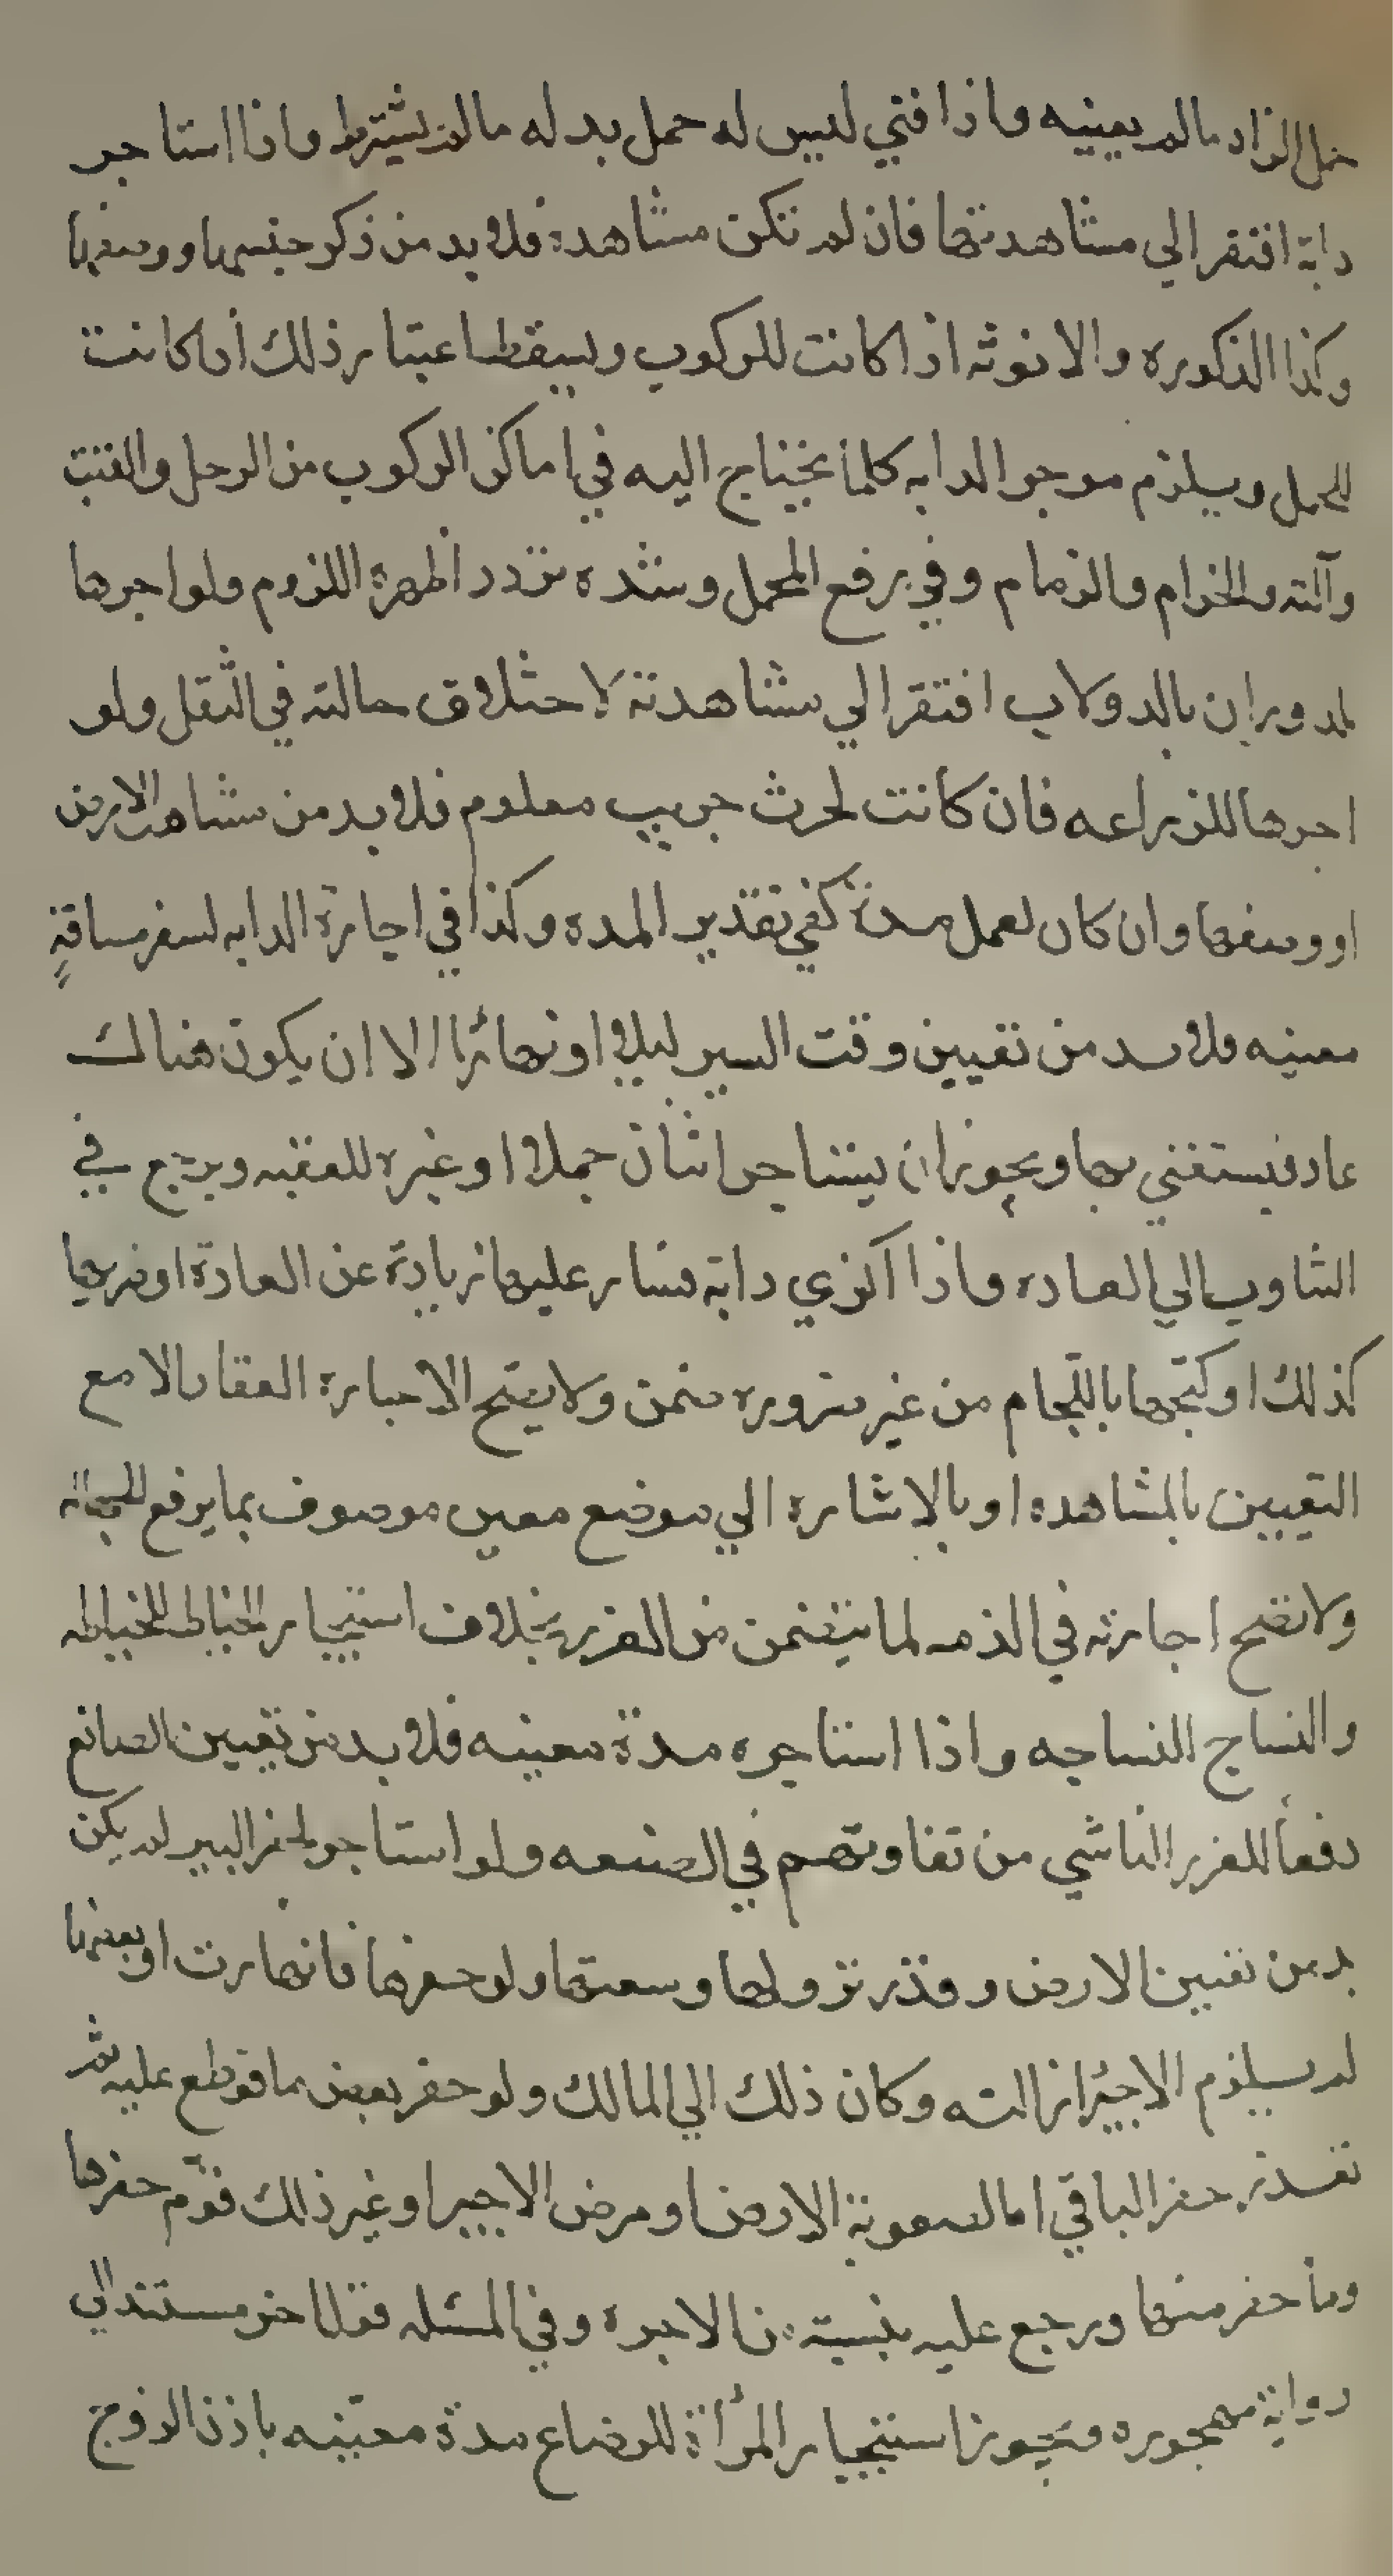 حمل الزاد مالم يعينه واذا فني ليس له حمل بدله مالم يشترط واذا استاجر
دابة افتقر الي مشاهدتها فان لم تكن مشاهدة فلا بد من ذكر جنسها ووصفها
وكذا الذكوره والانوثه اذا كانت للركوب ويسقط اعتبار ذلك اذا كانت
للحمل ويلزم موجر الدابه كلما يحتاج اليه في اماكن الركوب من الرحل والقتب
وآلته والخزام والزمام وفي رفع المحمل وشده تردد اظهره اللزوم ولو اجرها
لدوران بالدولاب افتقر الي مشاهدته لاختلاف حالته في الثقل ولو
اجرها للزراعه فان كانت لحرث جريب معلوم فلا بد من مشاهدة الارض
او وصفها وان كان لعمل مدة كفي تقدير المده وكذا في اجارة الدابه لسفر مسافة
معينه فلا بد من تعيين وقت السير ليلا او نهارا الا ان يكون هناك
عادة فيستغني بها ويجوز ان يستاجر اثنان جملا او غيره للعقبه ويرجع في
التناوب الي العاده واذا اكتري دابة فسار عليها زيادة عن العادة او ضربها
كذلك او كبحها باللجام من غير ضروره ضمن ولا يصح الاجاره العقار الا مع
التعيين بالمشاهده او بالاشاره الي موضع معين موصوف بما يرفع الجهاله
ولا تصح اجارته في الذمه لما يتضمن من الغرر بخلاف استيجار الخياط للخياطه
والنساج للنساجه واذا استاجره مدة معينه فلا بد من تعيين الصانع
دفعا للغرر الناشي من تفاوتهم في الصنعه ولو استاجر لحفر البير لم يكن
بد من تعيين الارض وقدر نزولها وسعتها ولو حفرها فانهارت او بعضها
لم يلزم الاجير ازالته وكان ذلك الي المالك ولو حفر بعض ما قوطع عليه ثم
تعذر حفر الباقي اما لصعوبة الارض او مرض الاجير او غير ذلك قوم حفرها
وما حفر منها ورجع عليه بنسبته من الاجره وفي المسئله قول اخر مستند الي
رواية مهجوره ويجوز استيجار المرأة للرضاع مدة معينه باذن الزوج